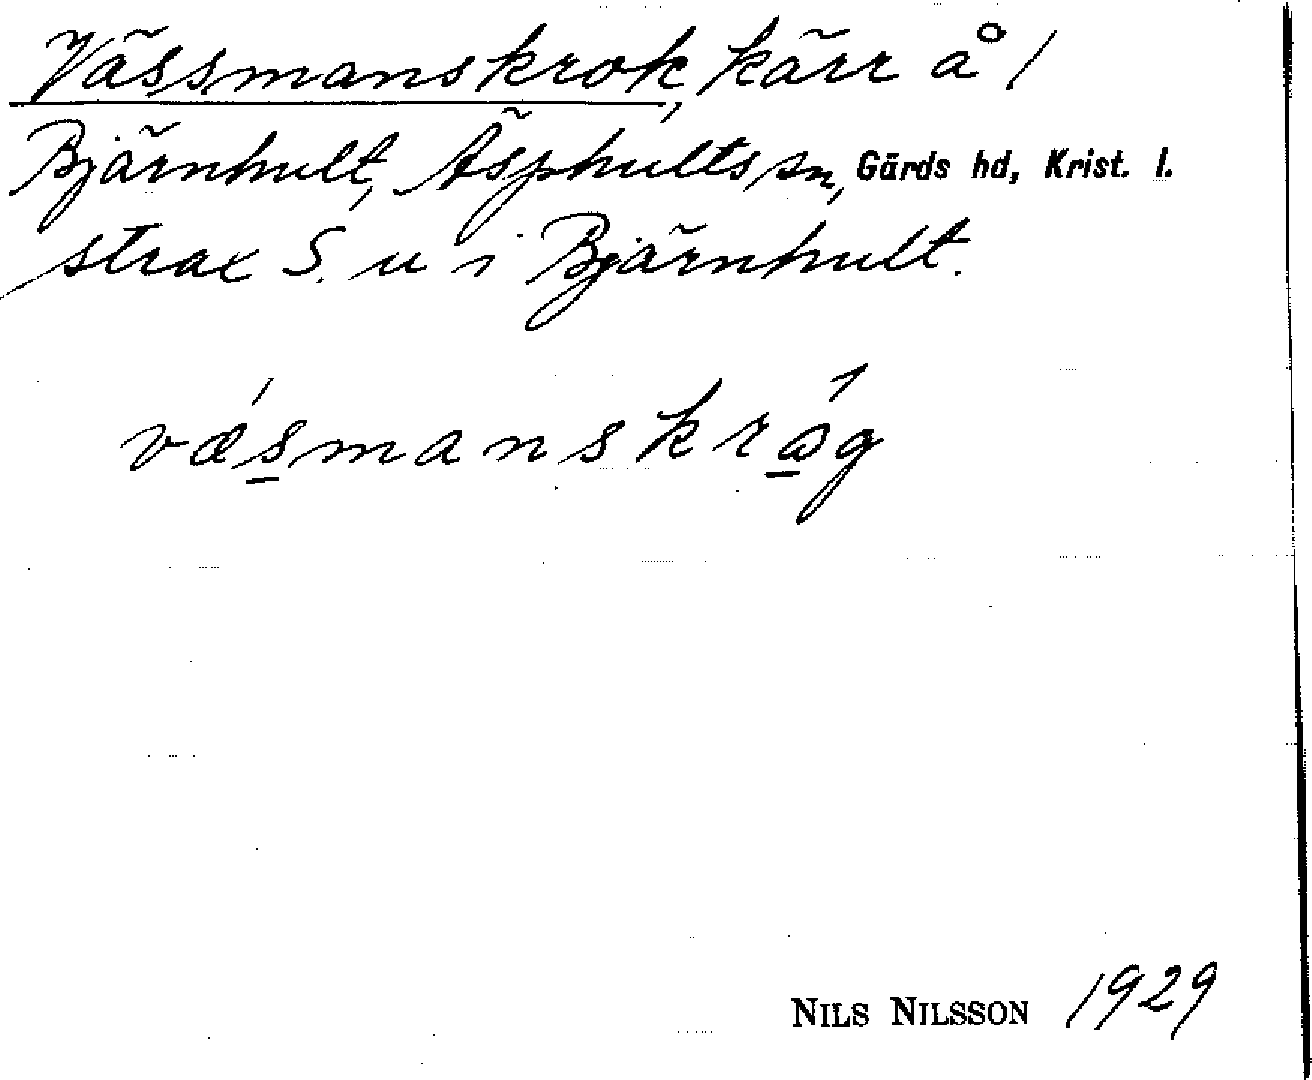 Vässmanskrok, kärr å 1
Bjärnhult, Äsphults sn, Gärds hd, Krist. l.
strax S. u i Bjärnhult.
vǽsmanskrǻg
NILS NILSSON 1929